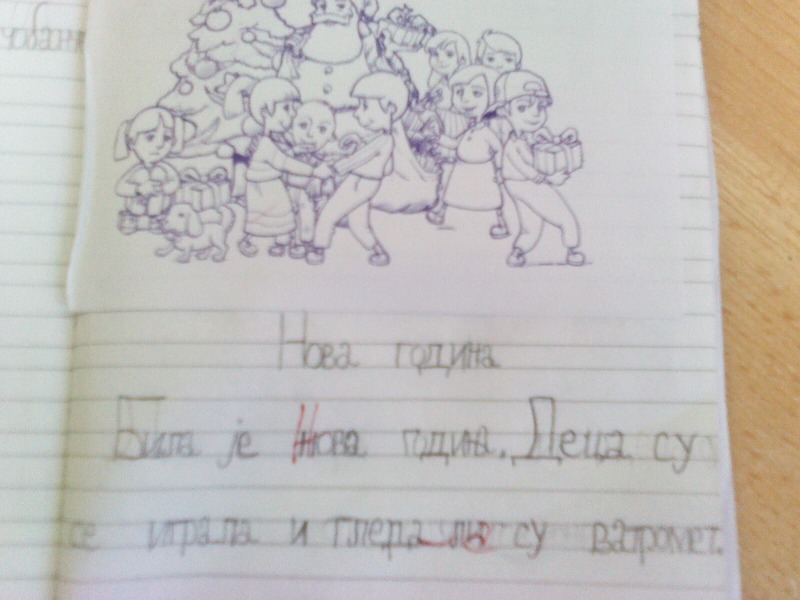 Нова година
Била је Нова година. Деца су
се играла и гледала су ватромет.